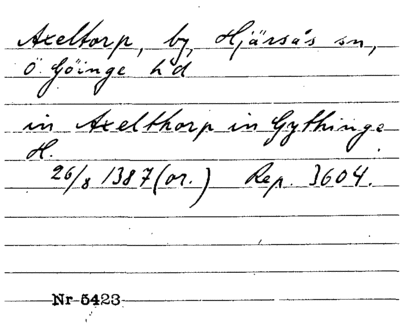 Axeltorp, by, Hjärsås sn,
Ö. Göinge hd
in Axelthorp in Gythinge
H.
26/8 1387 (or.) Rep. 3604.
Nr 5423